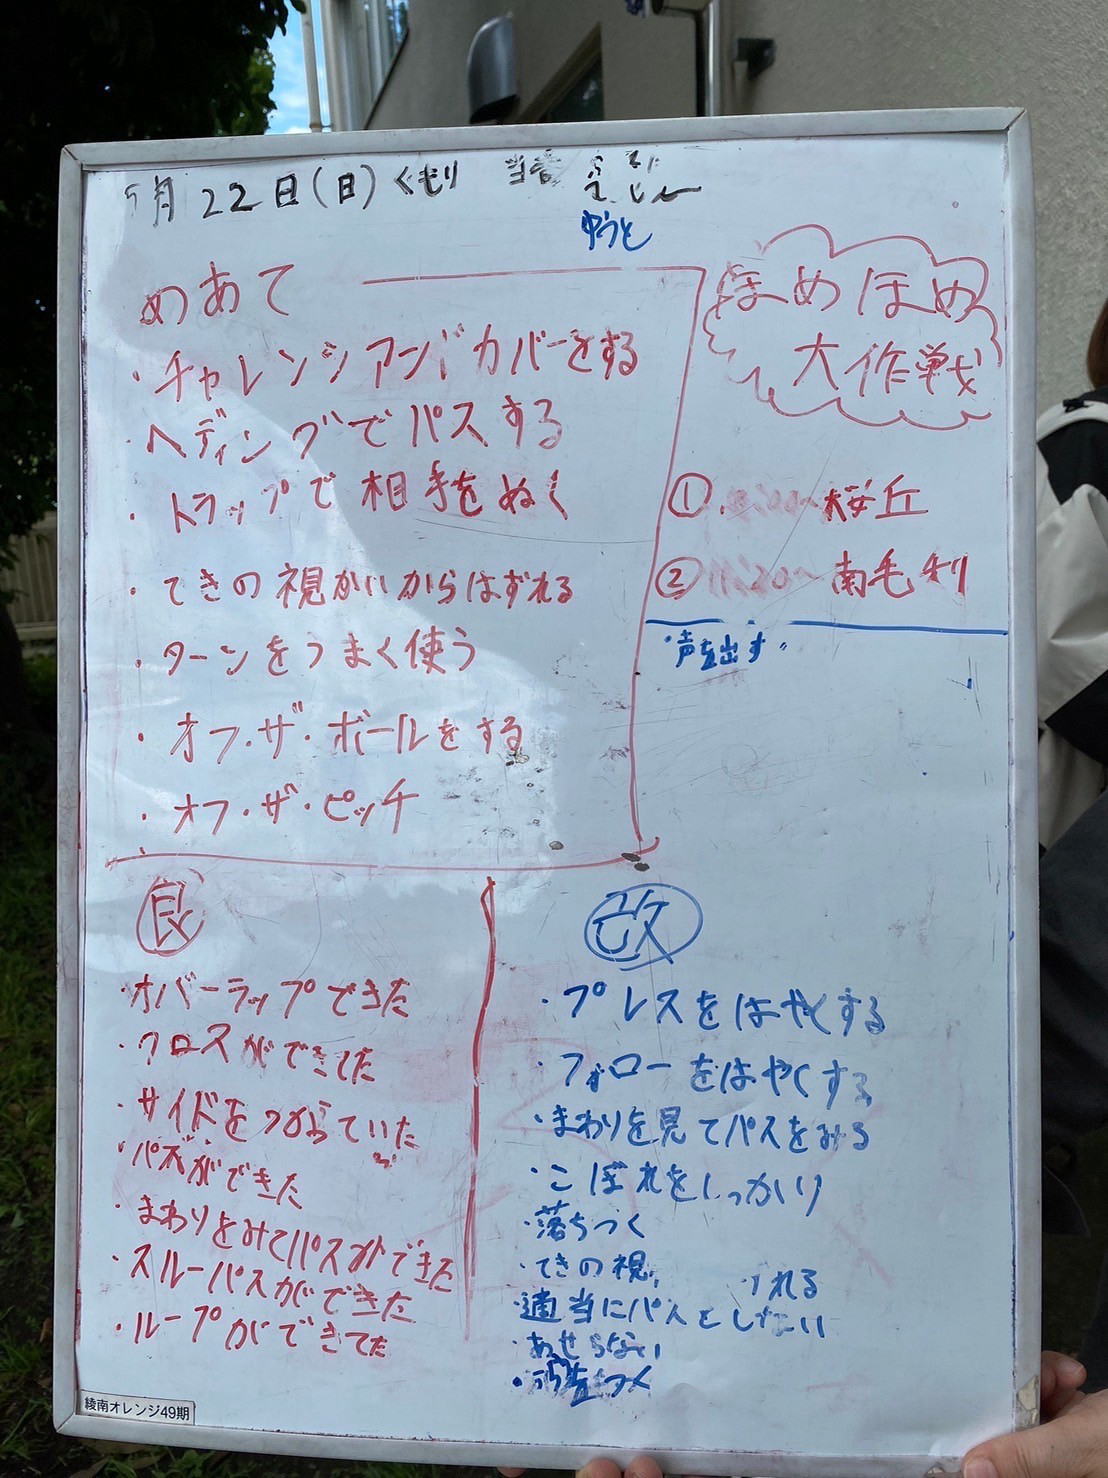 5月22日(日)くもり
ゆうと
めあて
・チャレンジアンドカバーをする
・ヘディングでパスする
・トラップで相手をぬく
・てきの視かいからはずれる
・ターンをうまく使う
・オフ・ザ・ボールをする
・オフ・ザ・ピッチ
ほめほめ
大作戦
① 桜丘
② 11:20〜南毛利
・声を出す。
良
・オバーラップできた
・クロスができてた
・サイドをつかっていた
・パスができた
・まわりをみてパスができた
・スルーパスができた
・ループができてた
改
・プレスをはやくする
・フォローをはやくする
・まわりを見てパスをみる
・こぼれをしっかり
・落ちつく
・てきの視 れる
・適当にパスをしない
・あせらない
綾南オレンジ49期